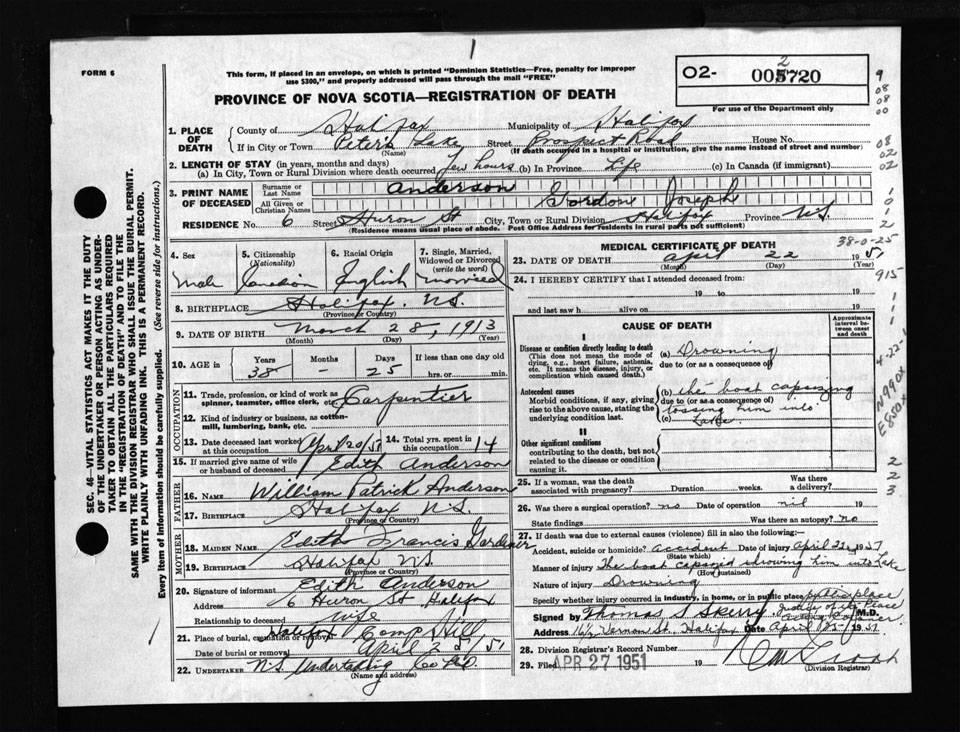 1
FORM 6
This form, if placed in an envelope, on which is printed "Dominion Statistics—Free, penalty for improper
use $300," and properly addressed will pass through the mail "FREE"
PROVINCE OF NOVA SCOTIA—REGISTRATION OF DEATH
02- 005720
2
For use of the Department only
9
08
08
00
08
02
02
1
0
1
2
38-0-25
915
1
1
1
4-22-
N990X
E850X
2
2
3
1. PLACE OF DEATH County of Halifax Municipality of Halifax
If in City or Town Peter's Lake Street Prospect Road House No.
(Name) (If death occurred in a hospital or institution, give the name instead of street and number)
2. LENGTH OF STAY (in years, months and days)
(a) In City, Town or Rural Division where death occurred few hours (b) In Province Life (c) In Canada (if immigrant)
3. PRINT NAME OF DECEASED Surname or Last Name Anderson
All Given or Christian Names Gordon Joseph
RESIDENCE No. 6 Street Huron St City, Town or Rural Division Halifax Province N.S.
(Residence means usual place of abode. Post Office Address for residents in rural parts not sufficient)
4. Sex Male
5. Citizenship (Nationality) Canadian
6. Racial Origin English
7. Single, Married, Widowed or Divorced (write the word) married
8. BIRTHPLACE Halifax. N.S.
(Province or Country)
9. DATE OF BIRTH March 28, 1913
(Month) (Day) (Year)
10. AGE in Years Months Days If less than one day old
38 - 25 hrs. or min.
OCCUPATION
11. Trade, profession, or kind of work as spinner, teamster, office clerk, etc. Carpentier
12. Kind of industry or business, as cotton-mill, lumbering, bank, etc.
13. Date deceased last worked at this occupation April 20/51 14. Total yrs. spent in this occupation 14
15. If married give name of wife or husband of deceased Edith Anderson
FATHER
16. NAME William Patrick Anderson
17. BIRTHPLACE Halifax N.S.
(Province or Country)
MOTHER
18. MAIDEN NAME Edith Francis Gardiner
19. BIRTHPLACE Halifax N.S.
(Province or Country)
20. Signature of informant Edith Anderson
Address 6 Huron St Halifax
Relationship to deceased wife
21. Place of burial, cremation or removal Halifax Camp Hill
Date of burial or removal April 25/51
22. UNDERTAKER N.S. Undertaking Co Ltd
(Name and address)
MEDICAL CERTIFICATE OF DEATH
23. DATE OF DEATH April 22 1951
(Month) (Day) (Year)
24. I HEREBY CERTIFY that I attended deceased from:
19 to 19
and last saw h alive on 19
CAUSE OF DEATH
Approximate interval between onset and death
I
Disease or condition directly leading to death
(This does not mean the mode of dying, e.g., heart failure, asthenia, etc. It means the disease, injury, or complication which caused death.)
(a) Drowning
due to (or as a consequence of)
Antecedent causes
Morbid conditions, if any, giving rise to the above cause, stating the underlying condition last.
(b) the boat capsizing
due to (or as a consequence of)
tossing him into
(c) Lake.
II
Other significant conditions
contributing to the death, but not related to the disease or condition causing it.
25. If a woman, was the death associated with pregnancy? Duration weeks. Was there a delivery?
26. Was there a surgical operation? no Date of operation nil
State findings Was there an autopsy? no
27. If death was due to external causes (violence) fill in also the following:
Accident, suicide or homicide? accident Date of injury April 22 1951
(State which)
Manner of injury The boat capsized throwing him into Lake
(How sustained)
Nature of injury Drowning
Specify whether injury occurred in industry, in home, or in public place public place
Signed by Thomas S Skerry Justice of the Peace M.D.
Address 16½ Vernon St. Halifax Date April 25 1951.
28. Division Registrar's Record Number
29. Filed APR 27 1951 19
(Division Registrar)
SEC. 46—VITAL STATISTICS ACT MAKES IT THE DUTY
OF THE UNDERTAKER OR PERSON ACTING AS UNDER-
TAKER TO OBTAIN ALL THE PARTICULARS REQUIRED
IN THE "REGISTRATION OF DEATH" AND TO FILE THE
SAME WITH THE DIVISION REGISTRAR WHO SHALL ISSUE THE BURIAL PERMIT.
WRITE PLAINLY WITH UNFADING INK. THIS IS A PERMANENT RECORD.
Every item of information should be carefully supplied. (See reverse side for instructions.)